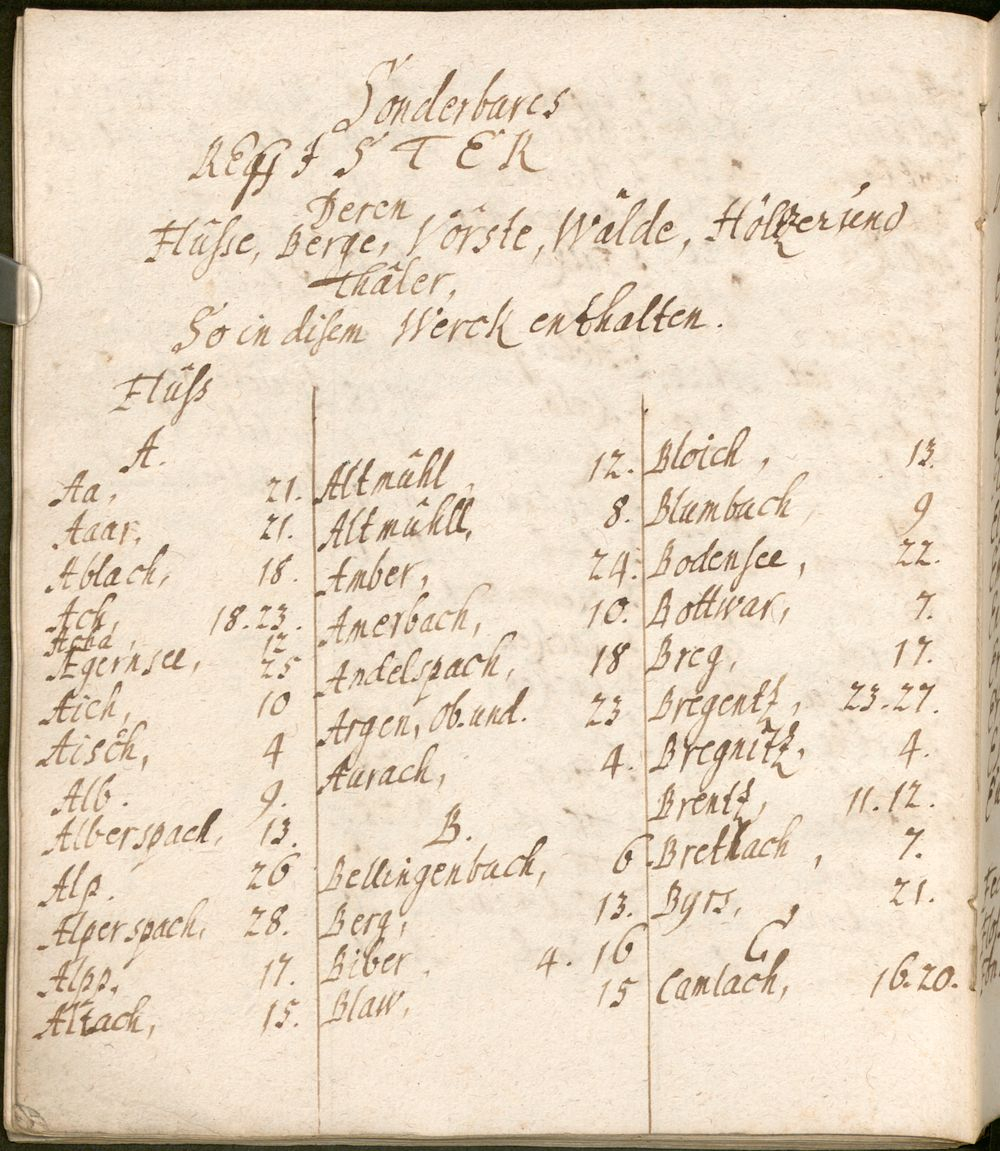 Sonderbares
REGISTER
Deren
Flüsse, Berge, Vörste, Wälde, Höltzer und
Thäler,
So in disem Werck enthalten.
Flüss
A.
Aa, 21.
Aaar, 21.
Ablach, 18.
Ach, 18.23.
Acha, 12
Agernsee, 25
Aich, 10
Aisch, 4
Alb. 9.
Alberspach, 13.
Alp. 26
Alperspach, 28.
Alpp. 17.
Altach, 15.
Altmühl, 12.
Altmühll, 8.
Amber, 24.
Amerbach, 10.
Andelspach, 18
Argen, Ob. und. 23
Aurach, 4.
B.
Bellingenbach, 6
Berg, 13.
Biber. 4. 16
Blaw, 15
Bloich, 13.
Blumbach, 9
Bodensee, 22.
Bottwar, 7.
Breg, 17.
Bregentz, 23.27.
Bregnitz, 4.
Brentz, 11.12.
Brethach, 7.
Byrs, 21.
C
Camlach, 16.20.